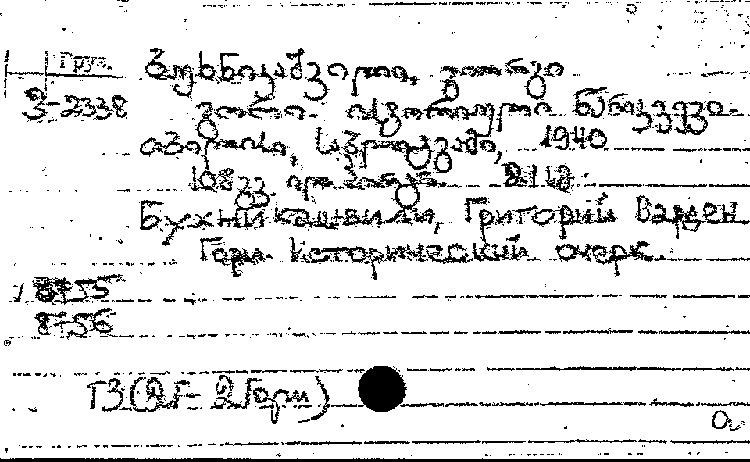 Груз. ბუხნიკაშვილი, გიორგი
3-2338 გორი. ისტორიული ნარკვევი.
თბილისი, საბლიტგამი, 1940
108 გვ.
Бухникашвили, Григорий Варден
Гори. Исторический очерк.
8755
8756
Т3(2Г-2Гори)